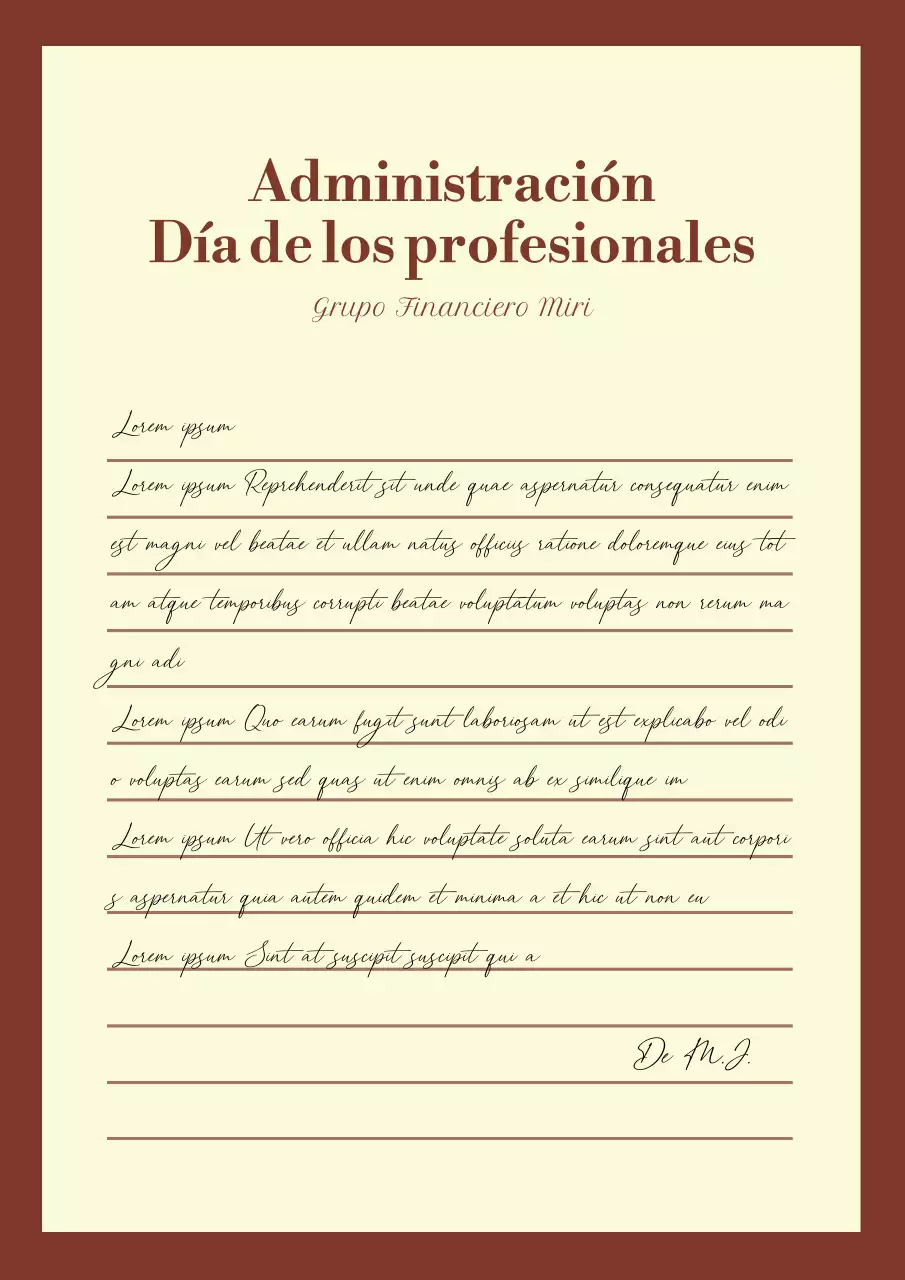 Administración
Día de los profesionales
Grupo Financiero Miri
Lorem ipsum
Lorem ipsum Reprehenderit sit unde quae aspernatur consequatur enim
est magni vel beatae et ullam natus officiis ratione doloremque eius tot
am atque temporibus corrupti beatae voluptatum voluptas non rerum ma
gni adi
Lorem ipsum Quo earum fugit sunt laboriosam ut est explicabo vel odi
o voluptas earum sed quas ut enim omnis ab ex similique im
Lorem ipsum Ut vero officia hic voluptate soluta earum sint aut corpori
s aspernatur quia autem quidem et minima a et hic ut non eu
Lorem ipsum Sint at suscipit suscipit qui a
De M.J.